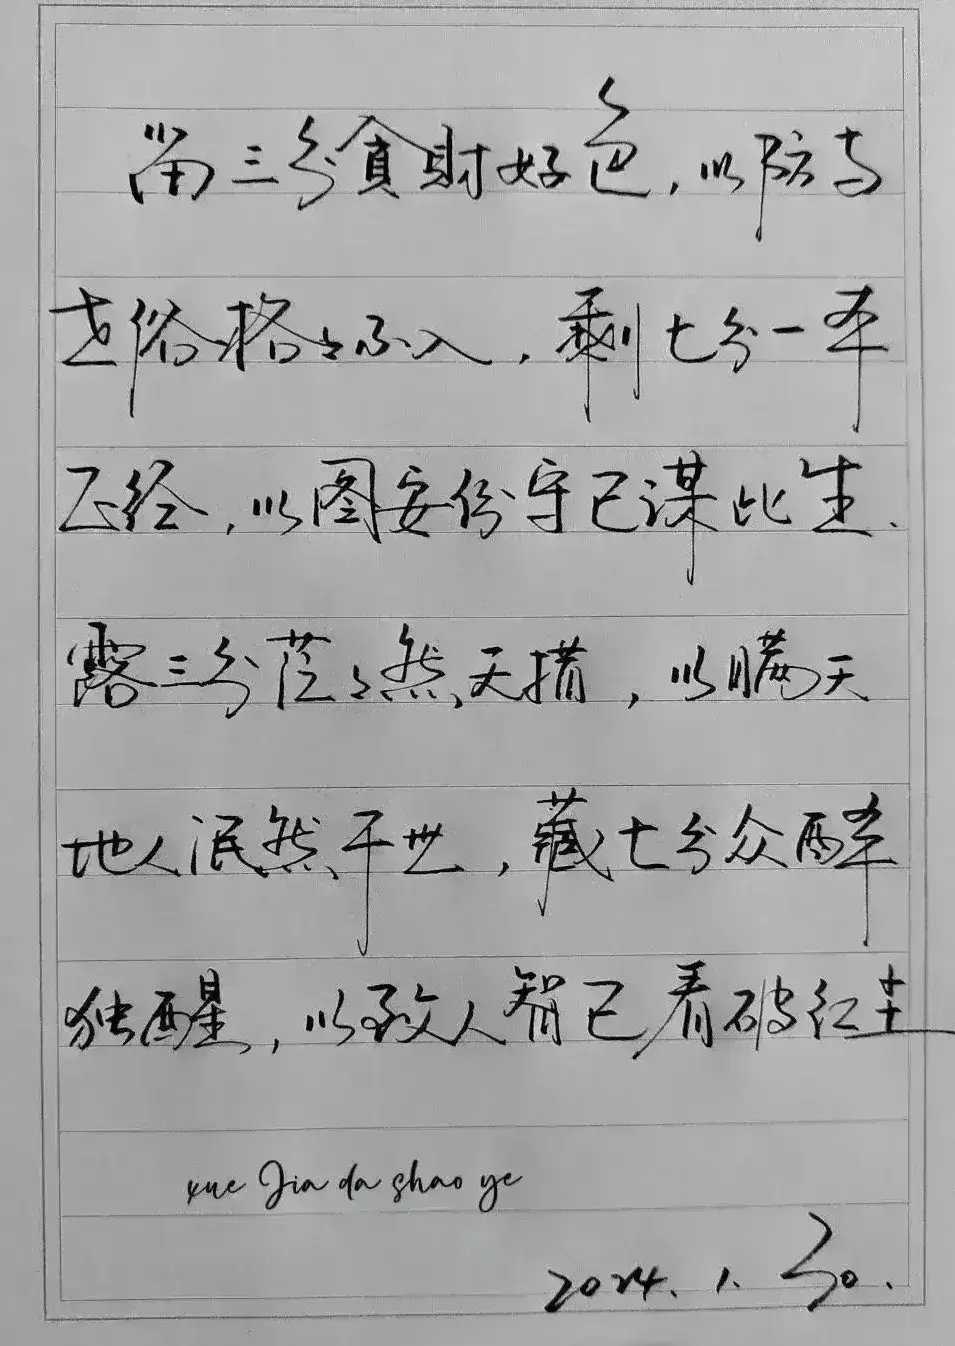 留三分貪財好色，以防与
世俗格々不入，剩七分一本
正经，以图安份守已谋此生.
露三分茫々然天措，以瞒天
地人泯然于世，藏七分众醉
独醒，以致人智已看破红尘
xue Jia da shao ye
2024.1.30.